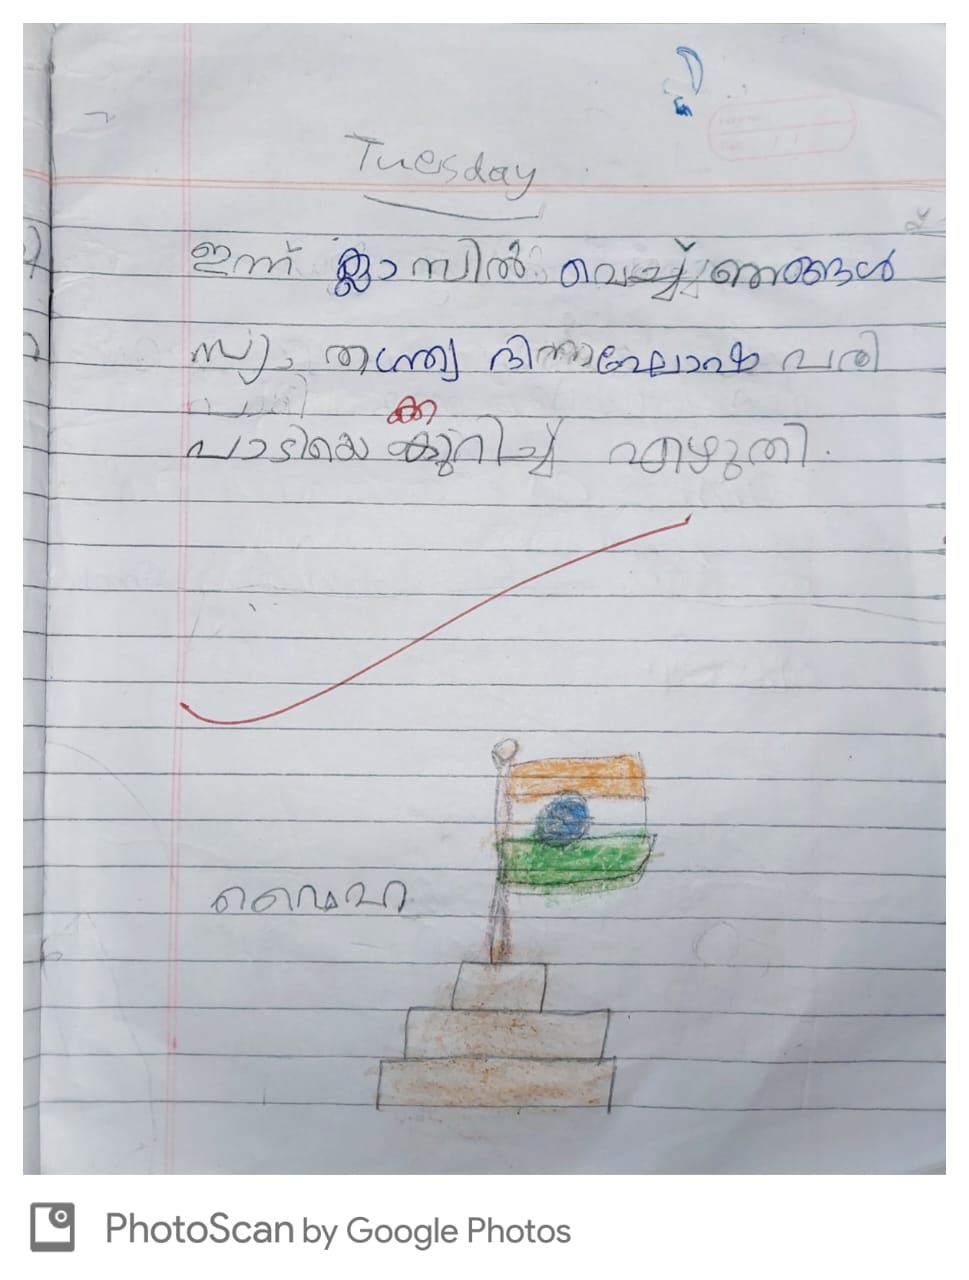 Tuesday
ഇന്ന് ക്ലാസിൽ വെച്ച് ഞങ്ങൾ
സ്വാതന്ത്ര്യ ദിനാഘോഷ പരി
ക്ക
പാടിയെ കുറിച്ച് എഴുതി.
PhotoScan by Google Photos